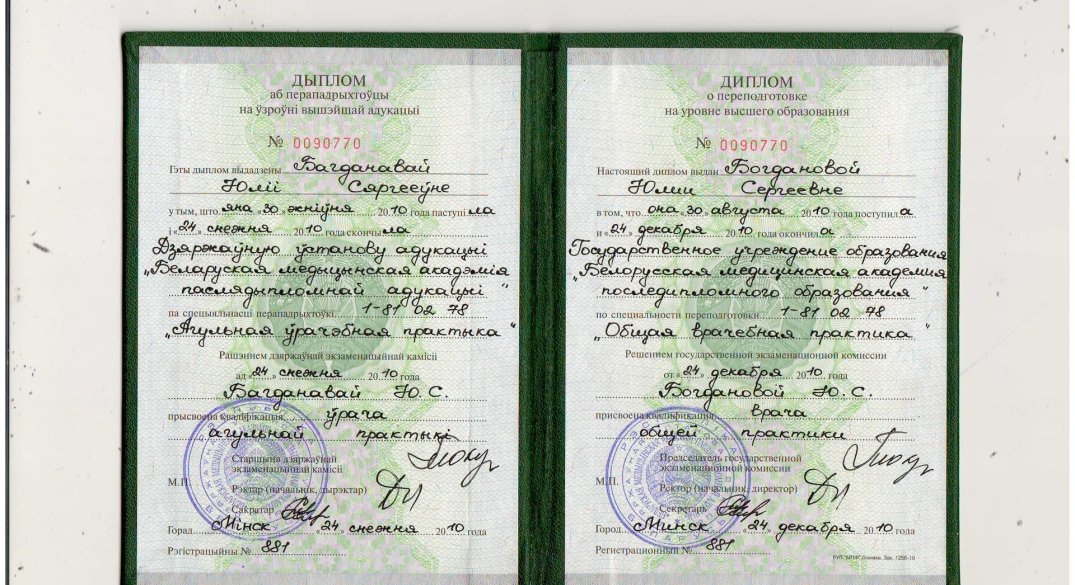 ДЫПЛОМ
аб перападрыхтоўцы
на ўзроўні вышэйшай адукацыі
№ 0090770
Гэты дыплом выдадзены Багданавай
Юліі Сяргееўне
у тым, што яна «30» жніўня 2010 года паступіла
і «24» снежня 2010 года скончыла
Дзяржаўную ўстанову адукацыі
"Беларуская медыцынская акадэмія
паслядыпломнай адукацыі"
па спецыяльнасці перападрыхтоўкі 1-81 02 78
"Агульная ўрачэбная практыка"
Рашэннем дзяржаўнай экзаменацыйнай камісіі
ад «24» снежня 2010 года
Багданавай Ю. С.
прысвоена кваліфікацыя ўрача
агульнай практыкі
Старшыня дзяржаўнай
экзаменацыйнай камісіі
М.П.
Рэктар (начальнік, дырэктар)
Сакратар
Горад Мінск «24» снежня 2010 года
Рэгістрацыйны № 881
ДИПЛОМ
о переподготовке
на уровне высшего образования
№ 0090770
Настоящий диплом выдан Богдановой
Юлии Сергеевне
в том, что она «30» августа 2010 года поступила
и «24» декабря 2010 года окончила
Государственное учреждение образования
"Белорусская медицинская академия
последипломного образования"
по специальности переподготовки 1-81 02 78
"Общая врачебная практика"
Решением государственной экзаменационной комиссии
от «24» декабря 2010 года
Богдановой Ю. С.
присвоена квалификация врача
общей практики
Председатель государственной
экзаменационной комиссии
М.П.
Ректор (начальник, директор)
Секретарь
Город Минск «24» декабря 2010 года
Регистрационный № 881